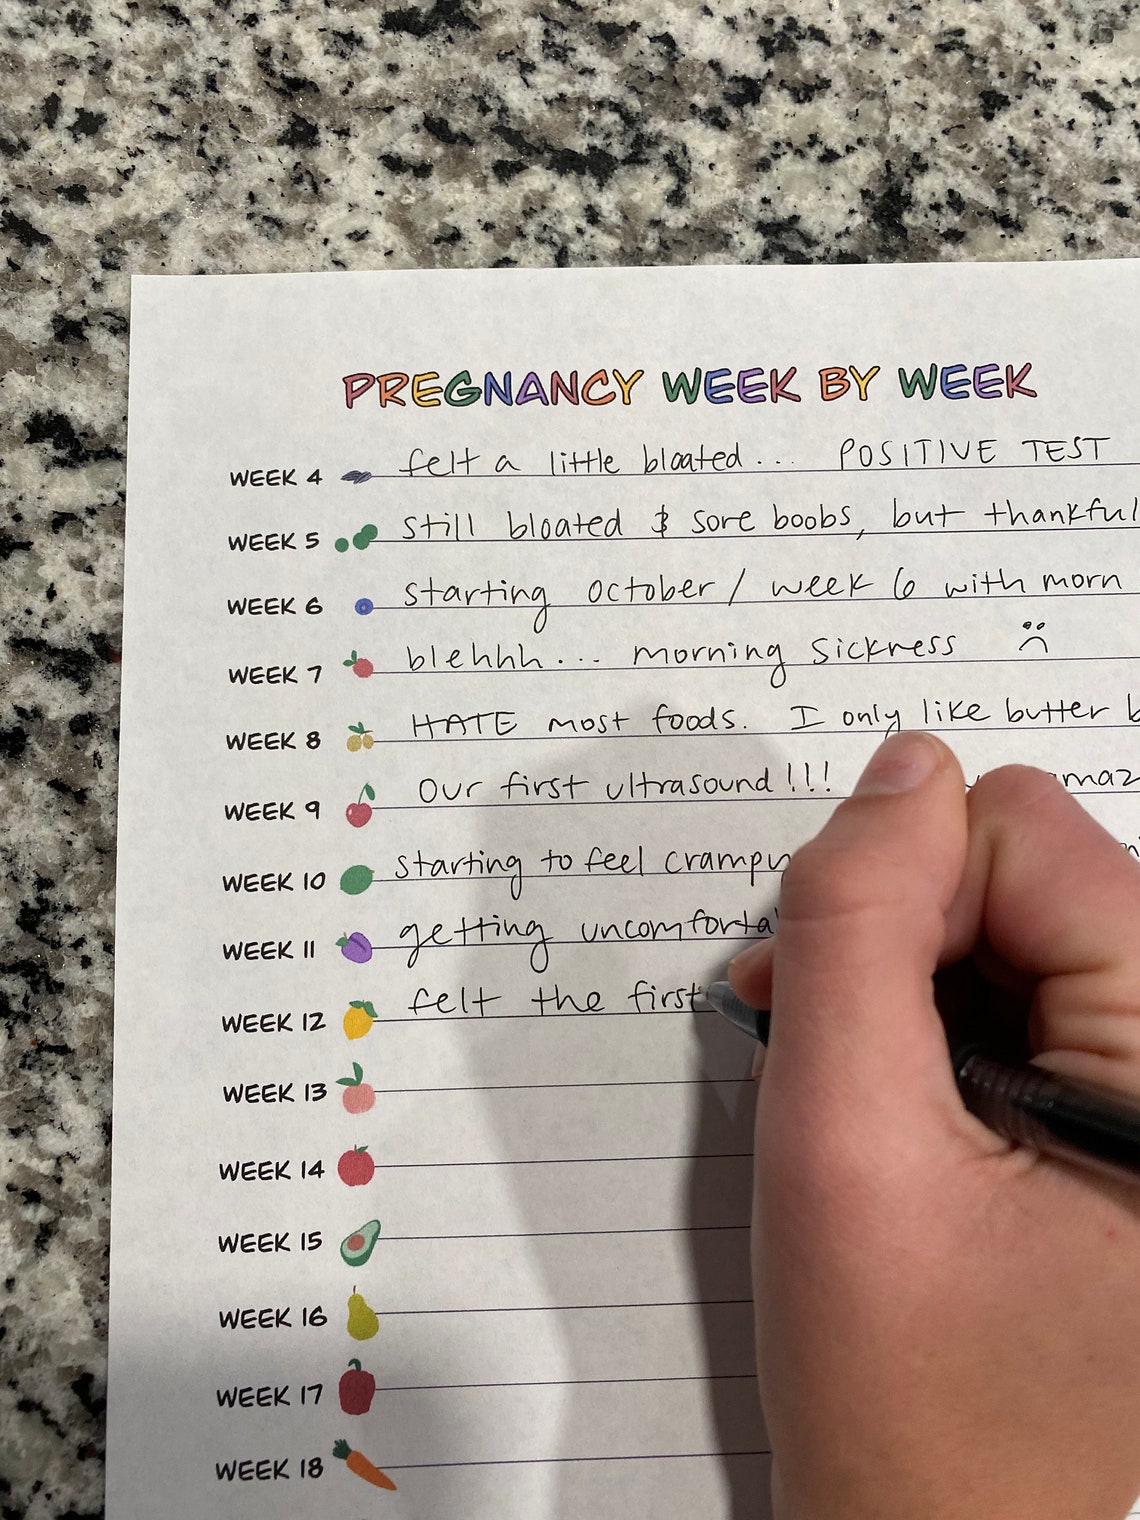 PREGNANCY WEEK BY WEEK
WEEK 4 felt a little bloated... POSITIVE TEST
WEEK 5 still bloated & sore boobs, but thankful
WEEK 6 starting October / week 6 with morn
WEEK 7 blehhh... morning sickness
WEEK 8 HATE most foods. I only like butter
WEEK 9 Our first ultrasound!!!
WEEK 10 starting to feel
WEEK 11 getting
WEEK 12 felt the first
WEEK 13
WEEK 14
WEEK 15
WEEK 16
WEEK 17
WEEK 18